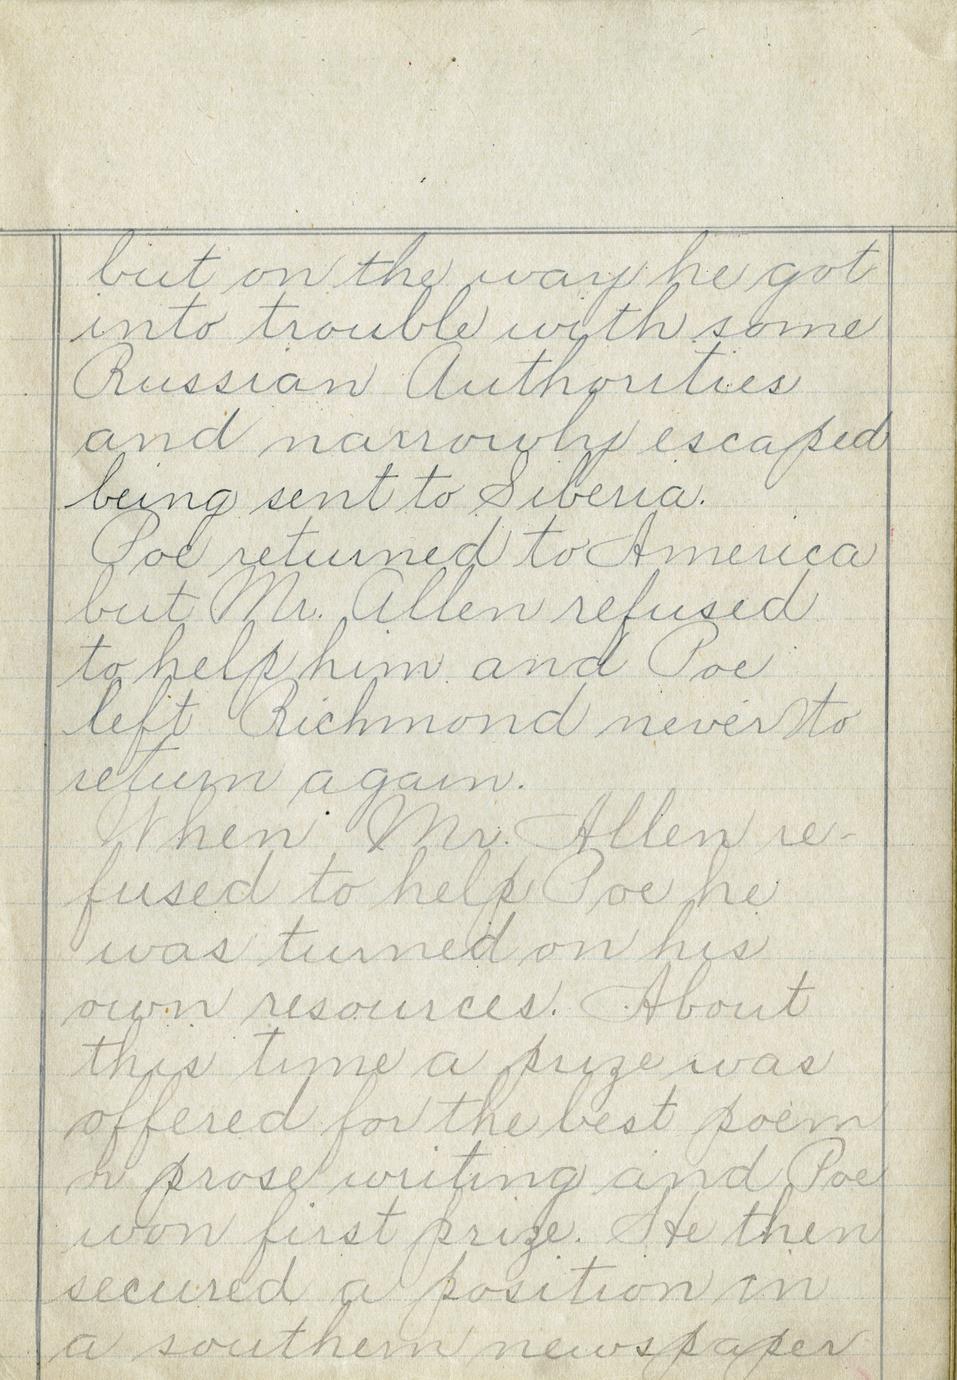 but on the way he got
into trouble with some
Russian Authorities
and narrowly escaped
being sent to Siberia.
Poe returned to America
but Mr. Allen refused
to help him and Poe
left Richmond never to
return again.
When Mr. Allen re-
fused to help Poe he
was turned on his
own resources. About
this time a prize was
offered for the best poem
or prose writing and Poe
won first prize. He then
secured a position in
a southern newspaper